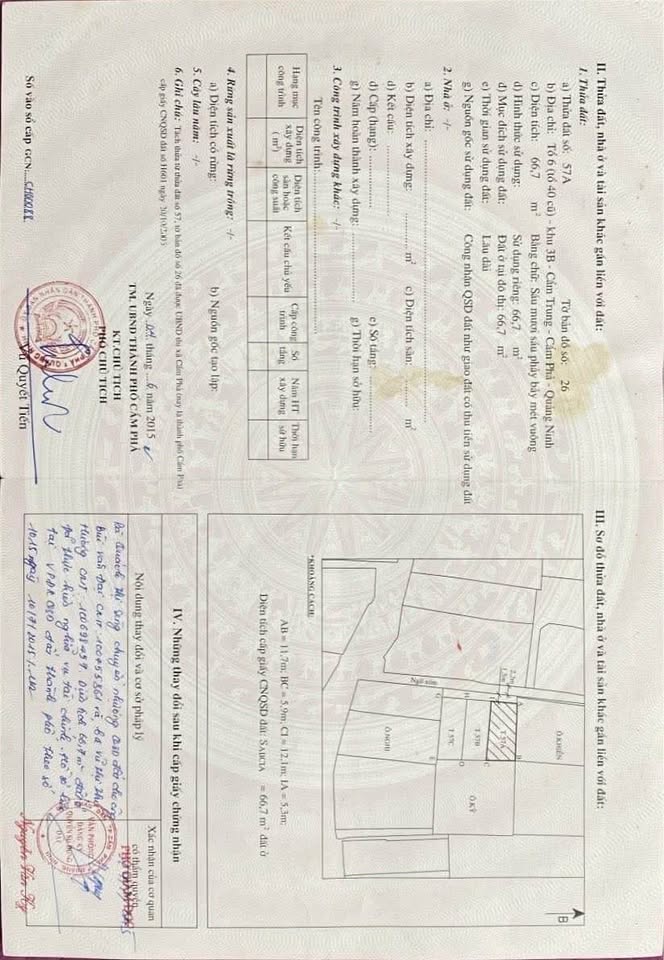 II. Thửa đất, nhà ở và tài sản khác gắn liền với đất:
1. Thửa đất:
a) Thửa đất số: 57A Tờ bản đồ số: 26
b) Địa chỉ: Tổ 6 (tổ 40 cũ) - khu 3B - Cẩm Trung - Cẩm Phả - Quảng Ninh
c) Diện tích: 66,7 m² Bằng chữ: Sáu mươi sáu phảy bảy mét vuông
d) Hình thức sử dụng: Sử dụng riêng: 66,7 m²
đ) Mục đích sử dụng đất: Đất ở tại đô thị: 66,7 m²
e) Thời gian sử dụng đất: Lâu dài
g) Nguồn gốc sử dụng đất: Công nhận QSD đất như giao đất có thu tiền sử dụng đất
2. Nhà ở: -/-
a) Địa chỉ:
b) Diện tích xây dựng: m² c) Diện tích sàn: m²
d) Kết cấu:
đ) Cấp (hạng): e) Số tầng:
g) Năm hoàn thành xây dựng: g) Thời hạn sở hữu:
3. Công trình xây dựng khác: -/-
Tên công trình:
Hạng mục công trình Diện tích xây dựng (m²) Diện tích sàn hoặc công suất Kết cấu chủ yếu Cấp công trình Số tầng Năm HT xây dựng Thời hạn sở hữu
4. Rừng sản xuất là rừng trồng: -/-
a) Diện tích có rừng: b) Nguồn gốc tạo lập:
5. Cây lâu năm: -/-
6. Ghi chú: Tách thửa từ thửa đất số 57, tờ bản đồ số 26 đã được UBND thị xã Cẩm Phả (nay là thành phố Cẩm Phả)
cấp giấy CNQSD đất số H601 ngày
Ngày 04 tháng 6 năm 2015
TM. UBND THÀNH PHỐ CẨM PHẢ
KT. CHỦ TỊCH
PHÓ CHỦ TỊCH
Vũ Quyết Tiến
Số vào sổ cấp GCN:
III. Sơ đồ thửa đất, nhà ở và tài sản khác gắn liền với đất:
B
Ô.KHIÊN
Ô.KỲ
T.57A
T.57B
T.57C
Ô.NGHỊ
Ngõ xóm
*KHOẢNG CÁCH:
AB = 11,7m; BC = 5,9m; CI = 12,1m; IA = 5,3m;
Diện tích cấp giấy CNQSD đất: SABCIA = 66,7 m² đất ở
IV. Những thay đổi sau khi cấp giấy chứng nhận
Nội dung thay đổi và cơ sở pháp lý
Xác nhận của cơ quan có thẩm quyền
chuyển nhượng QSD đất cho
66,7 m² đất ở
thực hiện nghĩa vụ tài chính. Hồ sơ
tại VPĐK QSD đất thành phố theo số
PHÓ GIÁM ĐỐC
Nguyễn Văn